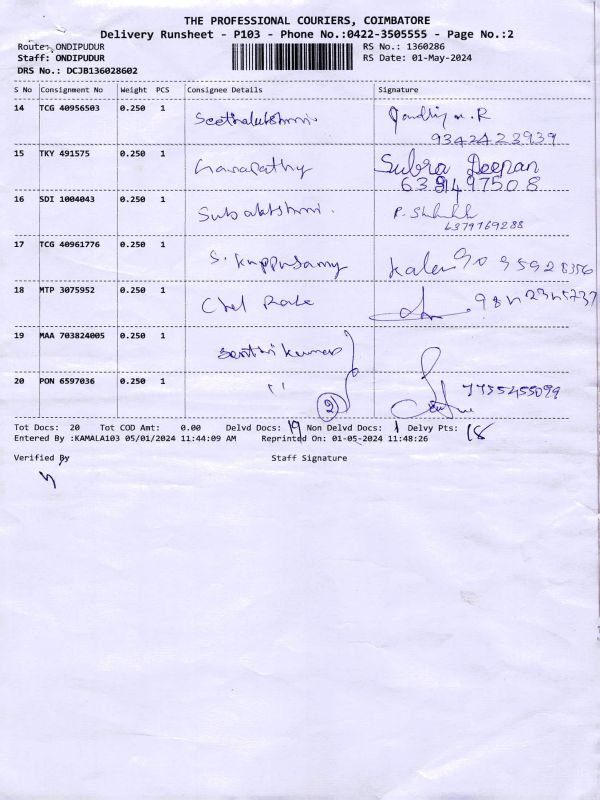 THE PROFESSIONAL COURIERS, COIMBATORE
Delivery Runsheet - P103 - Phone No.:0422-3505555 - Page No.:2
Route: ONDIPUDUR RS No.: 1360286
Staff: ONDIPUDUR RS Date: 01-May-2024
DRS No.: DCJB136028602
S No Consignment No Weight PCS Consignee Details Signature
14 TCG 40956503 0.250 1 Seethalakshmi.
9342423939
15 TKY 491575 0.250 1 Subra Deepan
63 9497508
16 SDI 1004043 0.250 1 Subalakshmi.
6379769288
17 TCG 40961776 0.250 1 S. Kuppusamy Kalai 90 95928356
18 MTP 3075952 0.250 1
19 MAA 703824005 0.250 1 Senthil kumar
20 PON 6597036 0.250 1 " 2
Tot Docs: 20 Tot COD Amt: 0.00 Delvd Docs: 19 Non Delvd Docs: 1 Delvy Pts: 18
Entered By :KAMALA103 05/01/2024 11:44:09 AM Reprinted On: 01-05-2024 11:48:26
Verified By Staff Signature